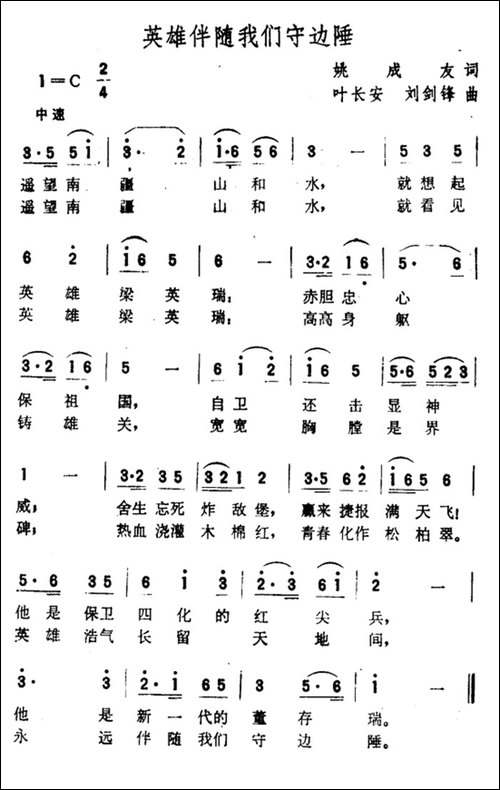 英雄伴随我们守边陲
1=C 2/4
姚成友词
中速
叶长安 刘剑锋曲
3·5 5i | 3· 2 | i·6 56 | 3 — | 5 3 5 |
遥望南疆 山和水, 就想起
遥望南疆 山和水, 就看见
6 2 | i6 5 | 6 — | 3·2 16 | 5· 6 |
英雄梁英瑞; 赤胆忠心
英雄梁英瑞; 高高身躯
3·2 16 | 5 — | 6i 2 | i6 5 | 5·6 523 |
保祖国, 自卫还击显神
铸雄关, 宽宽胸膛是界
1 — | 3·2 35 | 3212 | 3·5 62 | i65 6 |
威; 舍生忘死炸敌堡, 赢来捷报满天飞!
碑; 热血浇灌木棉红, 青春化作松柏翠。
5·6 35 | 6 i 3 | 2·3 6i | 2 — |
他是保卫四化的红尖兵,
英雄浩气长留天地间,
3· 3 | 2·i 65 | 3 5·6 | i — ‖
他是新一代的董存瑞。
永远伴随我们守边陲。